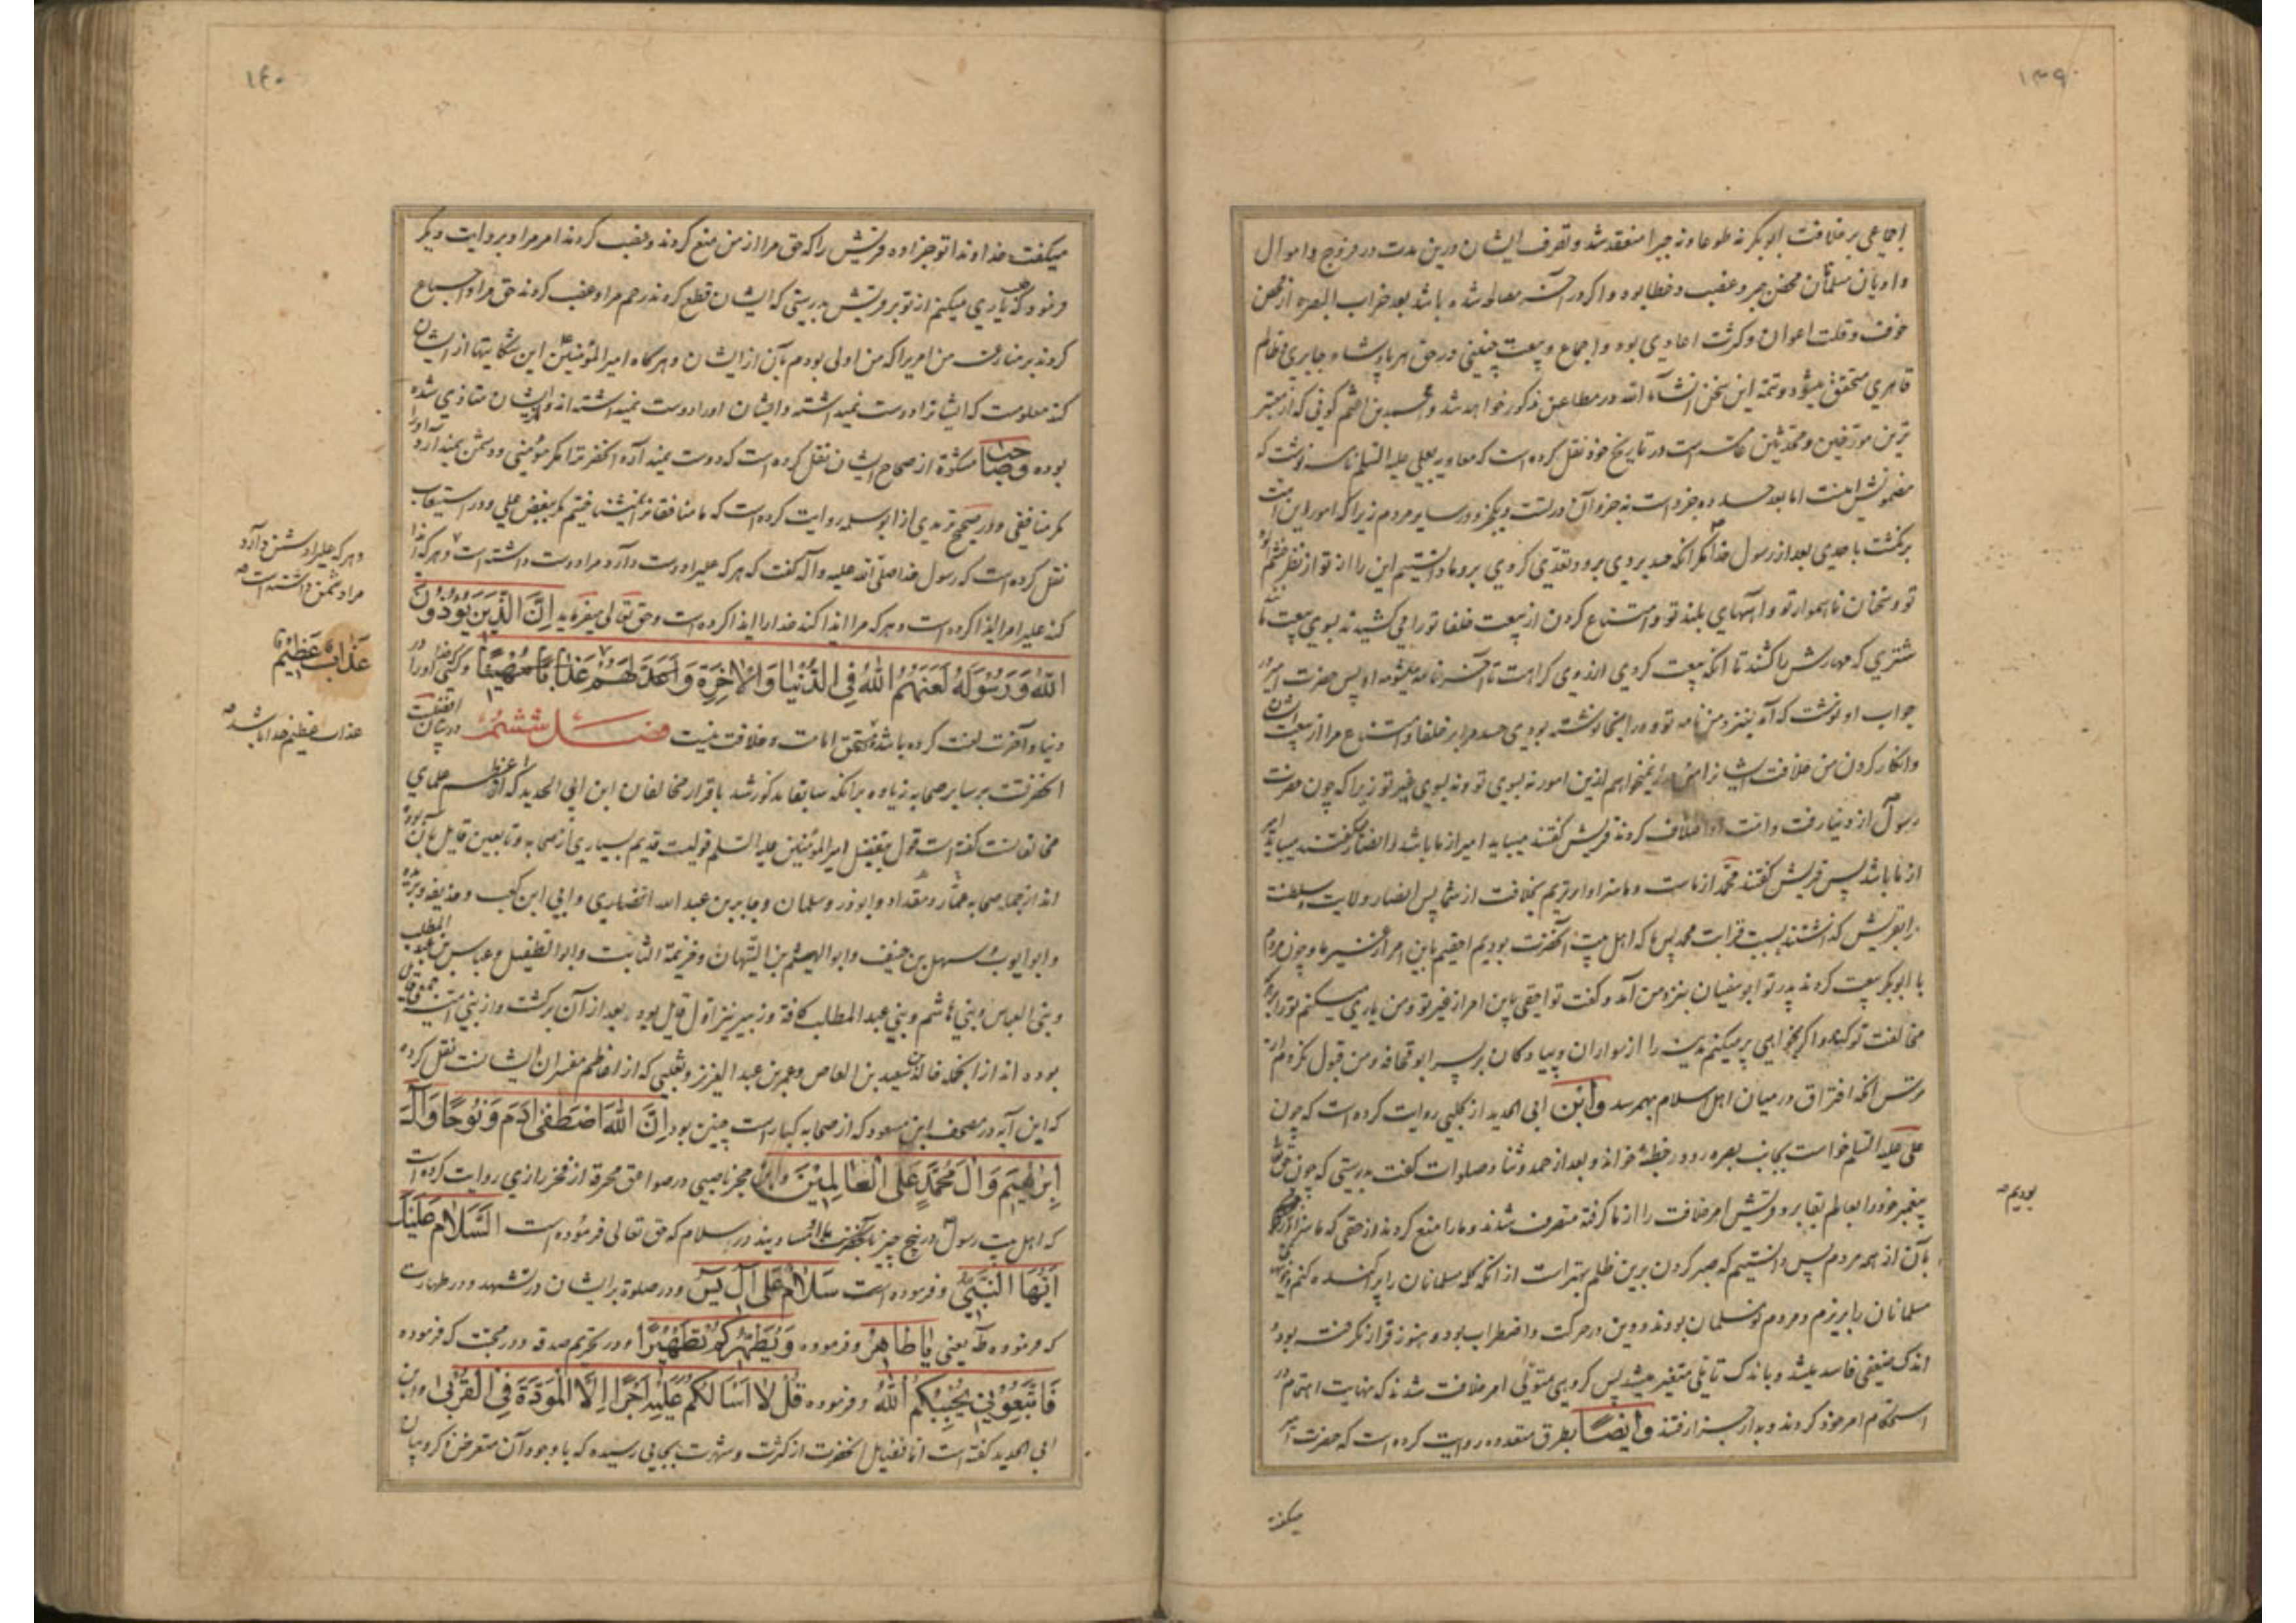 ۱۳۹
اجماعی بر خلافت ابو بکر نه طوعا و نه جبرا منعقد شد و تصرف ایشان درین مدت در فروج و اموال
و ادیان مسلمانان محض جبر و غصب و خطا بوده و اگر در آخر معامله شده باشد بعد خراب البصره از محض
خوف و قلت اعوان و کثرت اعادی بوده و اجماع و بیعت چنینی در حق هر پادشاه جابری و ظالم
قاهری متحقق میشود و تتمه این سخن انشاء الله در مطاعن مذکور خواهد شد و احمد بن اعثم کوفی که از معتبر
ترین مورخین و محدثین عامه است در تاریخ خود نقل کرده است که معاویه بعلی علیه السلم نامه نوشت که
مضمونش اینست اما بعد حسد ده جزو است نه جزو آن در تست و یکجزو در سایر مردم زیرا که امور این امت
برنگشت باحدی بعد از رسول خدا مگر آنکه حسد بردی برو و تعدی کردی برو ما دانستیم این را از تو از نظر خشم آلود
تو و سخنان ناهموار تو و آههای بلند تو و امتناع کردن از بیعت خلفا تو را می کشیدند بسوی بیعت مانند
شتری که مهارش را کشند تا آنکه بیعت کردی از روی کراهت تا آخر نامه میشومه او پس حضرت امیر در
جواب او نوشت که آمد بنزد من نامه تو و در اینجا نوشته بودی حسد مرا بر خلفا و امتناع مرا از بیعت ایشان
و انکار کردن من خلافت ایشانرا من عذر نمیخواهم ازین امور نه بسوی تو و نه بسوی غیر تو زیرا که چون حضرت
رسول از دنیا رفت و امت او اختلاف کردند قریش گفتند میباید امیر از ما باشد و انصار گفتند میباید امیر
از ما باشد پس قریش گفتند محمد از ماست و ما سزاوارتریم بخلافت از شما پس انصار ولایت و سلطنت
را بقریش گذاشتند بسبب قرابت محمد پس ما که اهل بیت آنحضرت بودیم احقیم باین امر از غیر ما و چون مردم
با ابو بکر بیعت کردند پدر تو ابو سفیان بنزد من آمد و گفت تو احقی باین امر از غیر تو و من یاری میکنم تو را بر هر که
مخالفت تو کند و اگر بخواهی پر میکنم مدینه را از سواران و پیادگان بر پسر ابو قحافه و من قبول نکردم از
ترس آنکه افتراق در میان اهل اسلام بهمرسد وابن ابی الحدید از کلبی روایت کرده است که چون
علی علیه السلم خواست بجانب بصره رود خطبه خواند و بعد از حمد و ثنا و صلوات گفت بدرستی که چون حق تعالی
پیغمبر خود را بعالم بقا برد قریش امر خلافت را از ما گرفته متصرف شدند و ما را منع کردند از حقی که ما سزاوارتر
بودیم
بآن از همه مردم پس دانستیم که صبر کردن برین ظلم بهتر است از آنکه کلمه مسلمانان را پراکنده کنم و خون
مسلمانان را بریزم و مردم نو مسلمان بودند و دین در حرکت و اضطراب بود و هنوز قرار نگرفته بود و
اندک ضعفی فاسد میشد و باندک تاملی متغیر میشد پس گروهی متولی امر خلافت شدند که نهایت اهتمام در
استحکام امر خود کردند و بدار جزا رفتند وایضا بطرق متعدده روایت کرده است که حضرت امیر
میگفت
۱۴۰
میگفت خداوندا تو جزا ده قریش را که حق مرا از من منع کردند و غصب کردند امر مرا و بروایت دیگر
فرمود که یاری میکنم از تو بر قریش بدرستی که ایشان قطع کردند رحم مرا و غصب کردند حق مرا و اجماع
کردند بر منازعت من امریرا که من اولی بودم بآن از ایشان و هر گاه امیر المؤمنین این شکایتها از ایشان
کند معلومست که ایشانرا دوست نمیداشته و ایشان اورا دوست نمیداشته اند و از ایشان متاذی شده
بوده وصاحب مشکوة از صحاح ایشان نقل کرده است که دوست نمیدارد آنحضرترا مگر مؤمنی و دشمن نمیدارد اورا
مگر منافقی و در صحیح ترمذی از ابو سلمه روایت کرده است که ما منافقانرا نمیشناختیم مگر ببغض علی و در استیعاب
نقل کرده است که رسول خدا صلی الله علیه و آله گفت که هر که علیرا دوست دارد مرا دوست داشته است و هر که ایذا
وهر که علیرا دشمن دارد
مرا دشمن داشته است
کند علیرا مرا ایذا کرده است و هر که مرا ایذا کند خدا را ایذا کرده است و حق تعالی میفرماید اِنَّ الَّذِینَ یُؤْذُونَ
اللّٰهَ وَرَسُولَهُ لَعَنَهُمُ اللّٰهُ فِی الدُّنْیَا وَالْاٰخِرَةِ وَاَعَدَّ لَهُمْ عَذَابًا مُهِینًا و کسی خدا اورا در
عَذَابٌ عَظِیمٌ
دنیا و آخرت لعنت کرده باشد مستحق امامت و خلافت نیست فصل ششم در بیان افضلیت
عذاب عظیم خدا باشد
آنحضرت بر سایر صحابه زیاده بر آنکه سابقا مذکور شد باقرار مخالفان ابن ابی الحدید که از اعاظم علمای
مخالفانست گفته است قول بتفضیل امیر المؤمنین علیه السلم قولیست قدیم بسیاری از صحابه و تابعین قایل بآن بوده
اند از جمله صحابه عمار و مقداد و ابوذر و سلمان و جابر بن عبد الله انصاری و ابی ابن کعب و حذیفه و بریده
و ابو ایوب و سهل بن حنیف و ابو الهیثم بن التیهان و خزیمة الثابت و ابو الطفیل و عباس بن عبد المطلب
و بنی العباس و بنی هاشم و بنی عبد المطلب کافة و زبیر نیز اول قایل بود و بعد از آن برگشت و از بنی امیه جمعی قایل
بوده اند از انجمله خالد بن سعید بن العاص و عمر بن عبد العزیز و ثعلبی که از اعاظم مفسران ایشانست نقل کرده
که این آیه در مصحف ابن مسعود که از صحابه کبار است چنین بود اِنَّ اللّٰهَ اصْطَفٰی اٰدَمَ وَنُوحًا وَاٰلَ
اِبْرٰهِیمَ وَاٰلَ مُحَمَّدٍ عَلَی الْعَالَمِینَ وابن حجر ناصبی در صواعق محرقه از فخر رازی روایت کرده است
که اهل بیت رسول در پنج چیز با آنحضرت مساویند در سلام که حق تعالی فرموده است اَلسَّلَامُ عَلَیْکَ
اَیُّهَا النَّبِیُّ و فرموده است سَلَامٌ عَلٰی اٰلِ یٰسٓ و در صلوة بر ایشان در تشهد و در طهارت
که فرموده طه یعنی یَا طَاهِرُ و فرموده وَیُطَهِّرَکُمْ تَطْهِیرًا و در تحریم صدقه و در محبت که فرموده
فَاتَّبِعُونِی یُحْبِبْکُمُ اللّٰهُ و فرموده قُلْ لَا اَسْاَلُکُمْ عَلَیْهِ اَجْرًا اِلَّا الْمَوَدَّةَ فِی الْقُرْبٰی وابن
ابی الحدید گفته است اما فضایل آنحضرت از کثرت و شهرت بجایی رسیده که با وجود آن متعرض ذکر و بیان